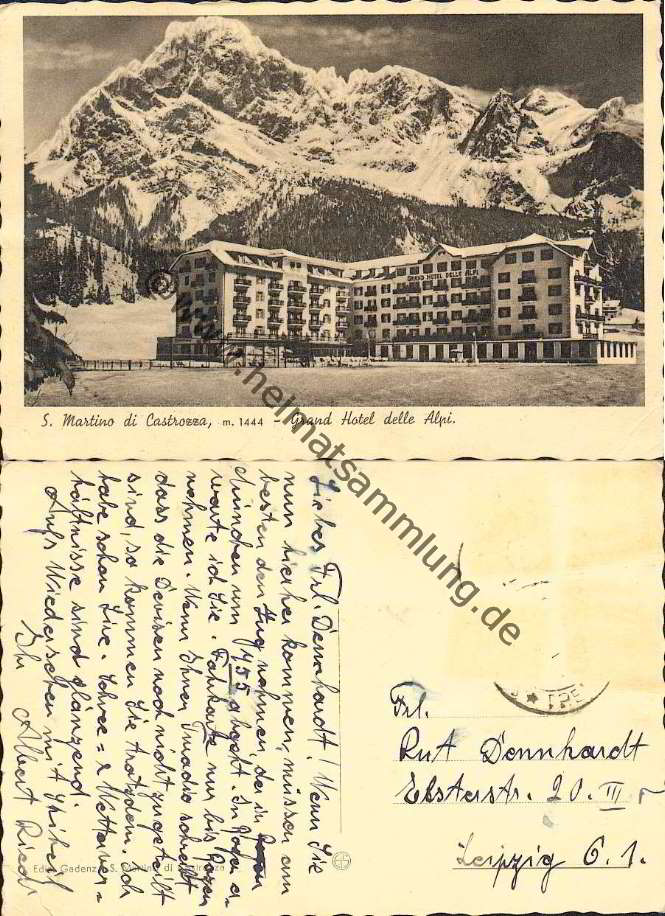 GRAND HOTEL DELLE ALPI
© www.heimatsammlung.de
S. Martino di Castrozza, m. 1444 - Grand Hotel delle Alpi.
Liebes Frl. Dennhardt! Wenn Sie
nun hierher kommen, müssen am
besten den Zug nehmen, der in
München um 7.55 abgeht. In Bozen er-
warte ich Sie. Fahrkarte nur bis Bozen
nehmen. Wenn Ihnen schreibt
dass die Devisen noch nicht zugeteilt
sind, so kommen Sie trotzdem. Ich
habe schon Lire. Schnee = & Wetterver-
hältnisse sind glänzend.
Aufs Wiedersehen mit
Ihr Albert
Frl.
Rut Dennhardt
Elsterstr. 20. III r
Leipzig C. 1.
Ediz. Gadenz, S. Martino di Castrozza